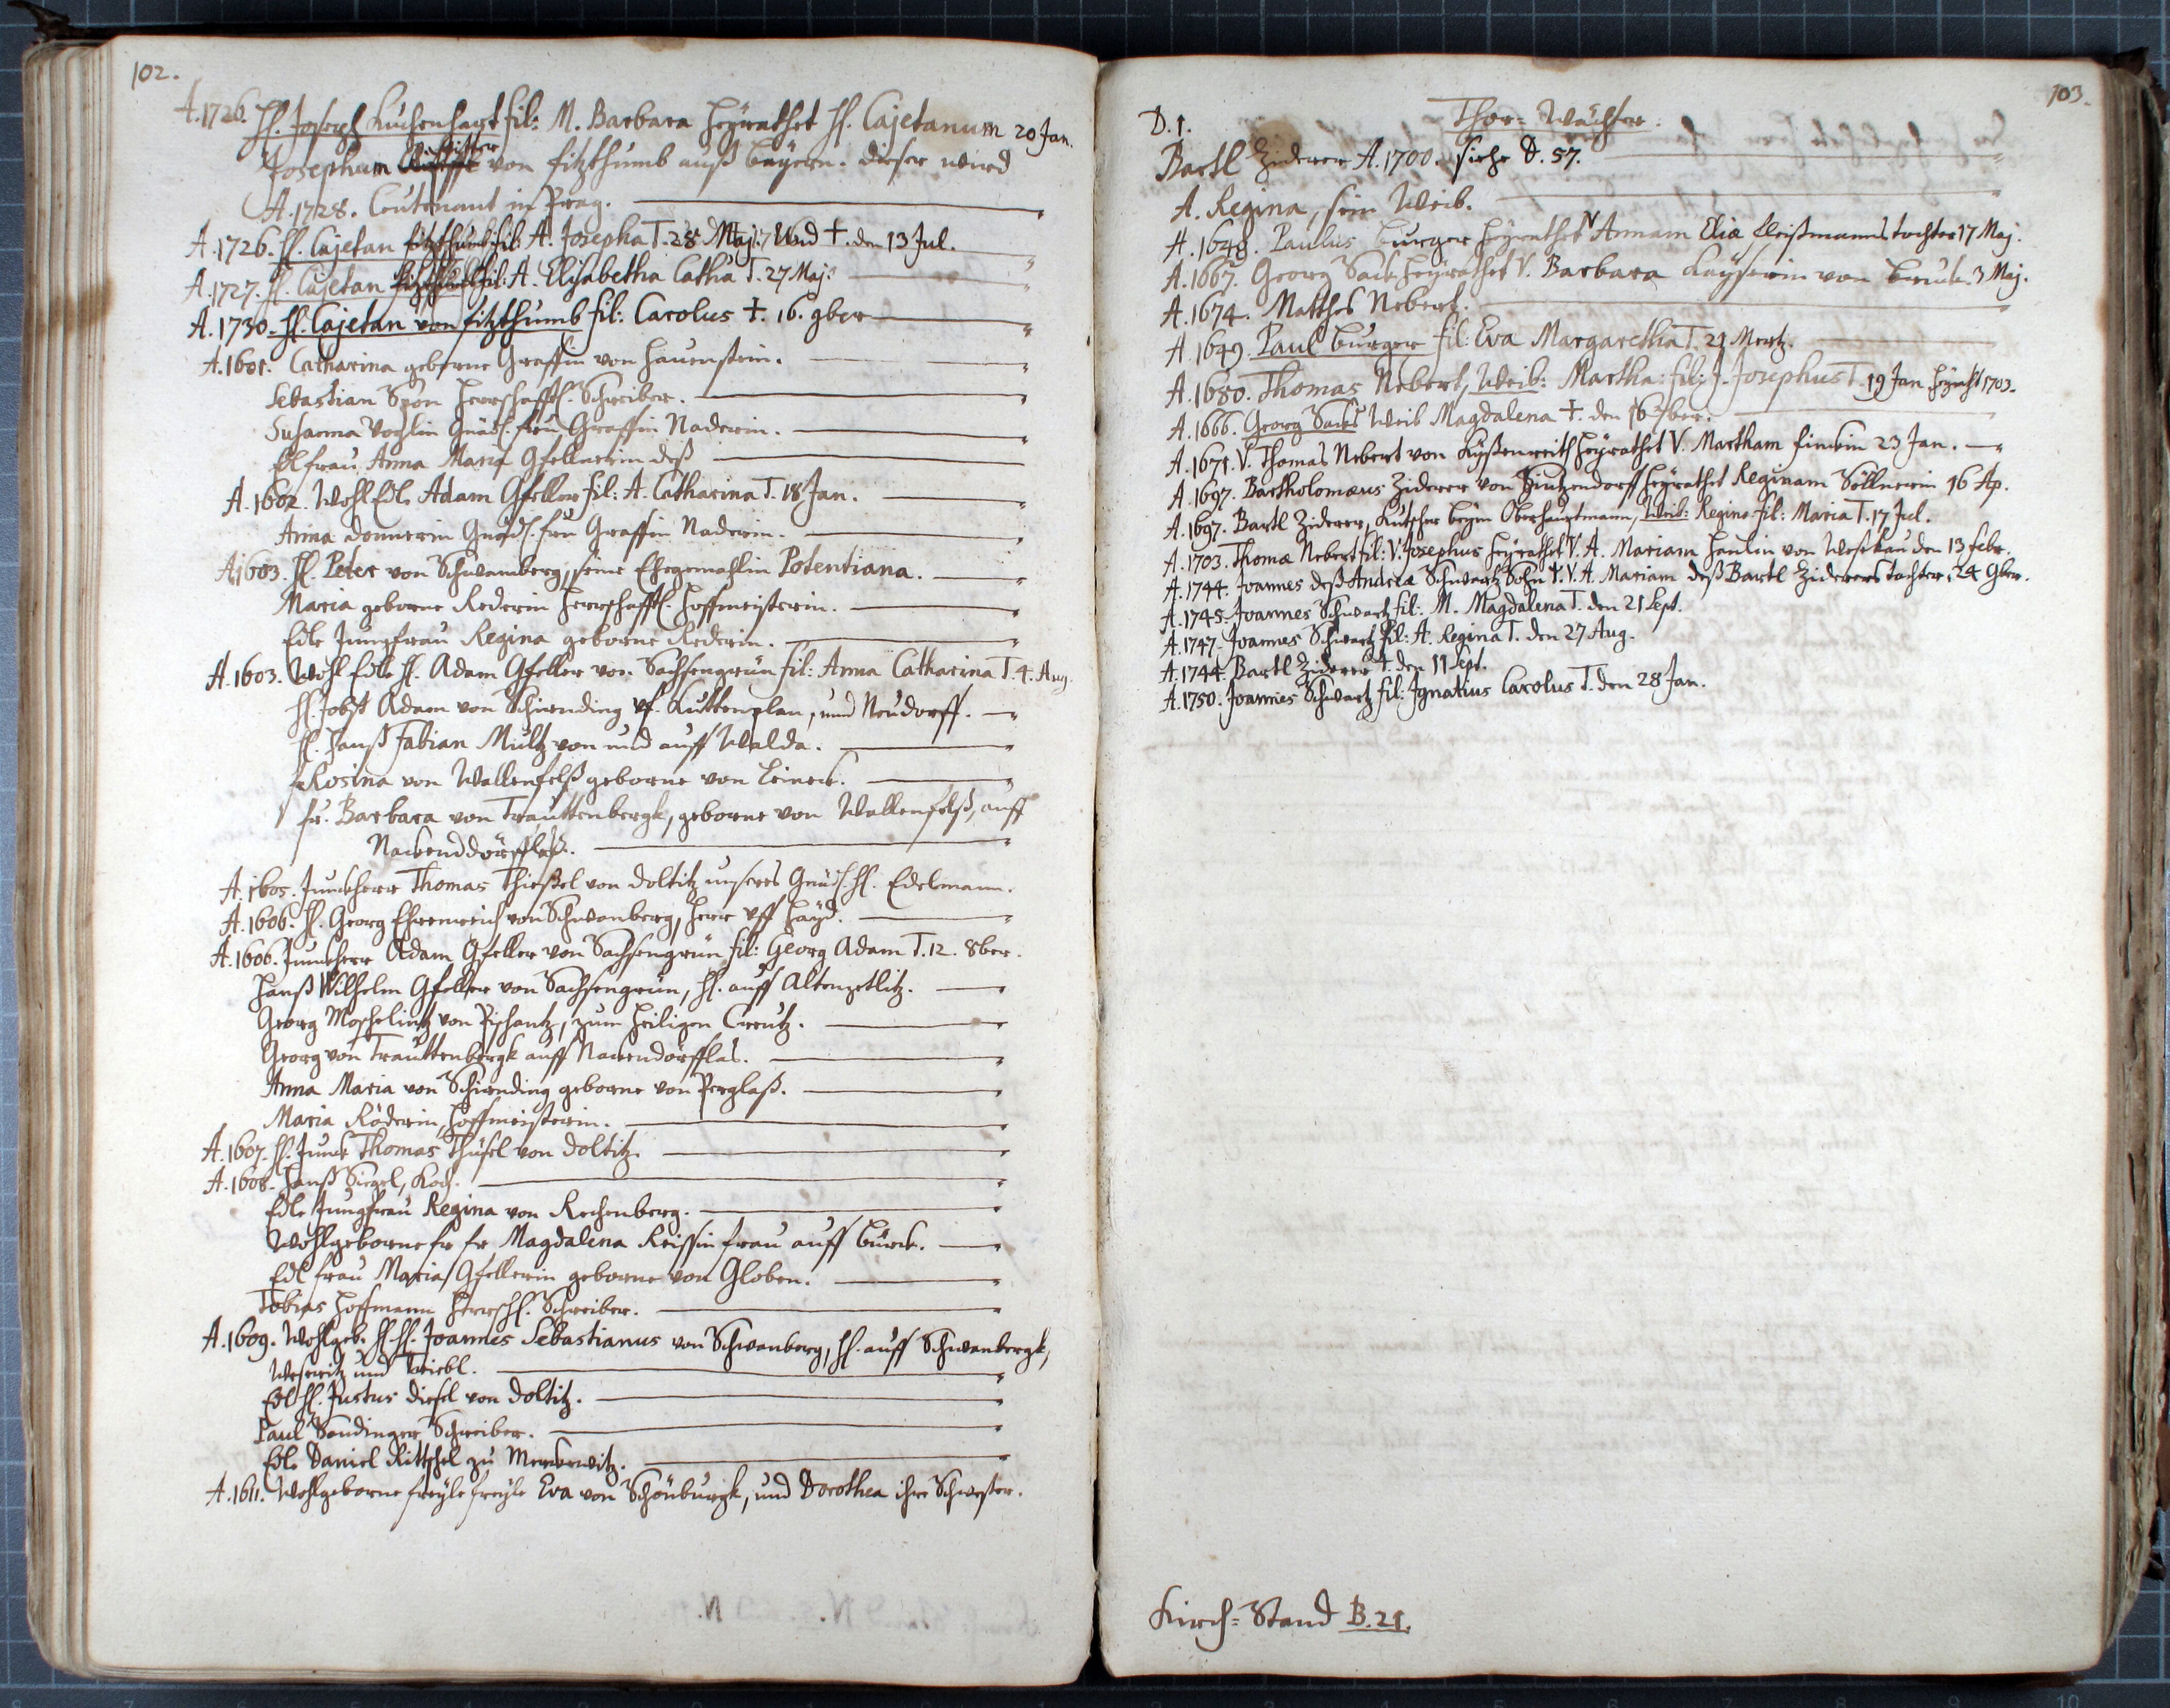 102.
A. 1726. H. Joseph Kuchenhart fil: M. Barbara heÿrathet H. Cajetanum 20 Jan.
Josephum Ritter von Fitzthumb auß Baÿern. dieser wurd
A. 1728. Leutenant in Prag.
A. 1726. H. Cajetan Fitzthumb fil: A. Josepha T. 28 Maj: Und †. den 13 Jul.
A. 1727. H. Cajetan fil: A. Elisabetha Catha T. 27 Maj:
A. 1730. H. Cajetan von Fitzthumb fil: Carolus †. 16. 9ber
A. 1601. Catharina geborne Graffin von Hauenstein.
Sebastian Spon Herrschafftl. Schreiber.
Susanna Vochlin Gnäd. frau Graffin Naderin.
Edl frau Anna Maria Gfellnerin deß
A. 1602. Wohl Edle Adam Gfeller fil: A. Catharina T. 18 Jan.
Anna donnerin Gnäd. frau Graffin Naderin.
A. 1603. H. Peter von Schwamberg, seine Ehegemahlin Potentiana.
Maria geborne Rederin Herrschafftl. Hoffmeisterin.
Edle Jungfrau Regina geborne Rederin.
A. 1603. Wohl Edle H. Adam Gfeller von Sachsengrün fil: Anna Catharina T. 4. Aug.
H. Jobst Adam von Schirnding uf. Kuttenplan, und Neudorff.
H. Hanß Fabian Multz von und auff Walda.
Rosina von Wallenfelß geborne von Leineck.
fr. Barbara von Trauttenbergk, geborne von Wallenfelß, auff
Nackenddörfflaß.
A. 1605. Junckherr Thomas Thießel von Doltitz unsers Gnäd. H. Edelmann.
A. 1606. H. Georg Ehrenreich von Schwanberg, Herr uff Haÿd.
A. 1606. Junckherr Adam Gfeller von Sachsengrün fil: Georg Adam T. 12. 8ber.
Hanß Wilhelm Gfeller von Sachsengrün, H. auff Altenzetlitz.
Georg Moschelintz von Pischantz, zum Heiligen Creutz.
Georg von Trauttenbergk auff Nackendörfflas.
Anna Maria von Schirnding geborne von Perglaß.
Maria Röderin, Hoffmeisterin.
A. 1607. H. Junck Thomas Thüsel von Doltitz.
A. 1608. Hanß Siegel, Koch.
Edle Jungfrau Regina von Rechenberg.
Wohlgeborne fr fr Magdalena Reissin frau auff Burck.
Edl frau Maria Gfellerin geborne von Globen.
Tobias Hoffmann Herrschl. Schreiber.
A. 1609. Wohlgeb. H. H. Joannes Sebastianus von Schwanberg, H. auff Schwanbergk,
Weseritz und Triebl.
Edl H. Justus Diesel von Doltitz.
Paul Sandinger Schreiber.
Edle Daniel Rittschel zu
A. 1611. Wohlgeborne freyle freyle Eva von Schönburgk, und Dorothea ihre Schwester.
103.
D. 1.
Thor=Wachter.
Bartl Ziderer A. 1700. siehe D. 57.
A. Regina, sein Weib.
A. 1648. Paulus Burger heÿrathet V Annam Eliæ Fleißmanns tochter 17 Maj.
A. 1667. Georg Sack heÿrathet V. Barbara Kaÿserin von Bruck. 3 Maj.
A. 1674. Matthes Nebert.
A. 1649. Paul Burger fil: Eva Margaretha T. 21 Mertz.
A. 1680. Thomas Nebert, Weib: Martha: fil: J. Josephus T. 19 Jan heÿrath 1703.
A. 1666. Georg Sacks Weib Magdalena †. den 16 7ber.
A. 1671. V. Thomas Nebert von heÿrathet V. Martham finckin 23 Jan.
A. 1697. Bartholomæus Ziderer von Hintzendorff heÿrathet Reginam Söllnerin 16 Ap.
A. 1697. Bartl Ziderer, Kutscher beÿm Oberhauptmann, Weib: Regina fil: Maria T. 17 Jul.
A. 1703. Thomæ Nebert fil: V. Josephus heÿrathet V. A. Mariam Haulin von den 13 febr.
A. 1744. Joannes deß Andreæ Schwartz Sohn V. V. A. Mariam deß Bartl Ziderers tochter. 24 9ber.
A. 1745. Joannes Schwartz fil: M. Magdalena T. den 21 Sept.
A. 1747. Joannes Schwartz fil: A. Regina T. den 27 Aug.
A. 1744. Bartl Ziderer †. den 11 Sept.
A. 1750. Joannes Schwartz fil: Ignatius Carolus T. den 28 Jan.
Kirch=Stand B. 21.